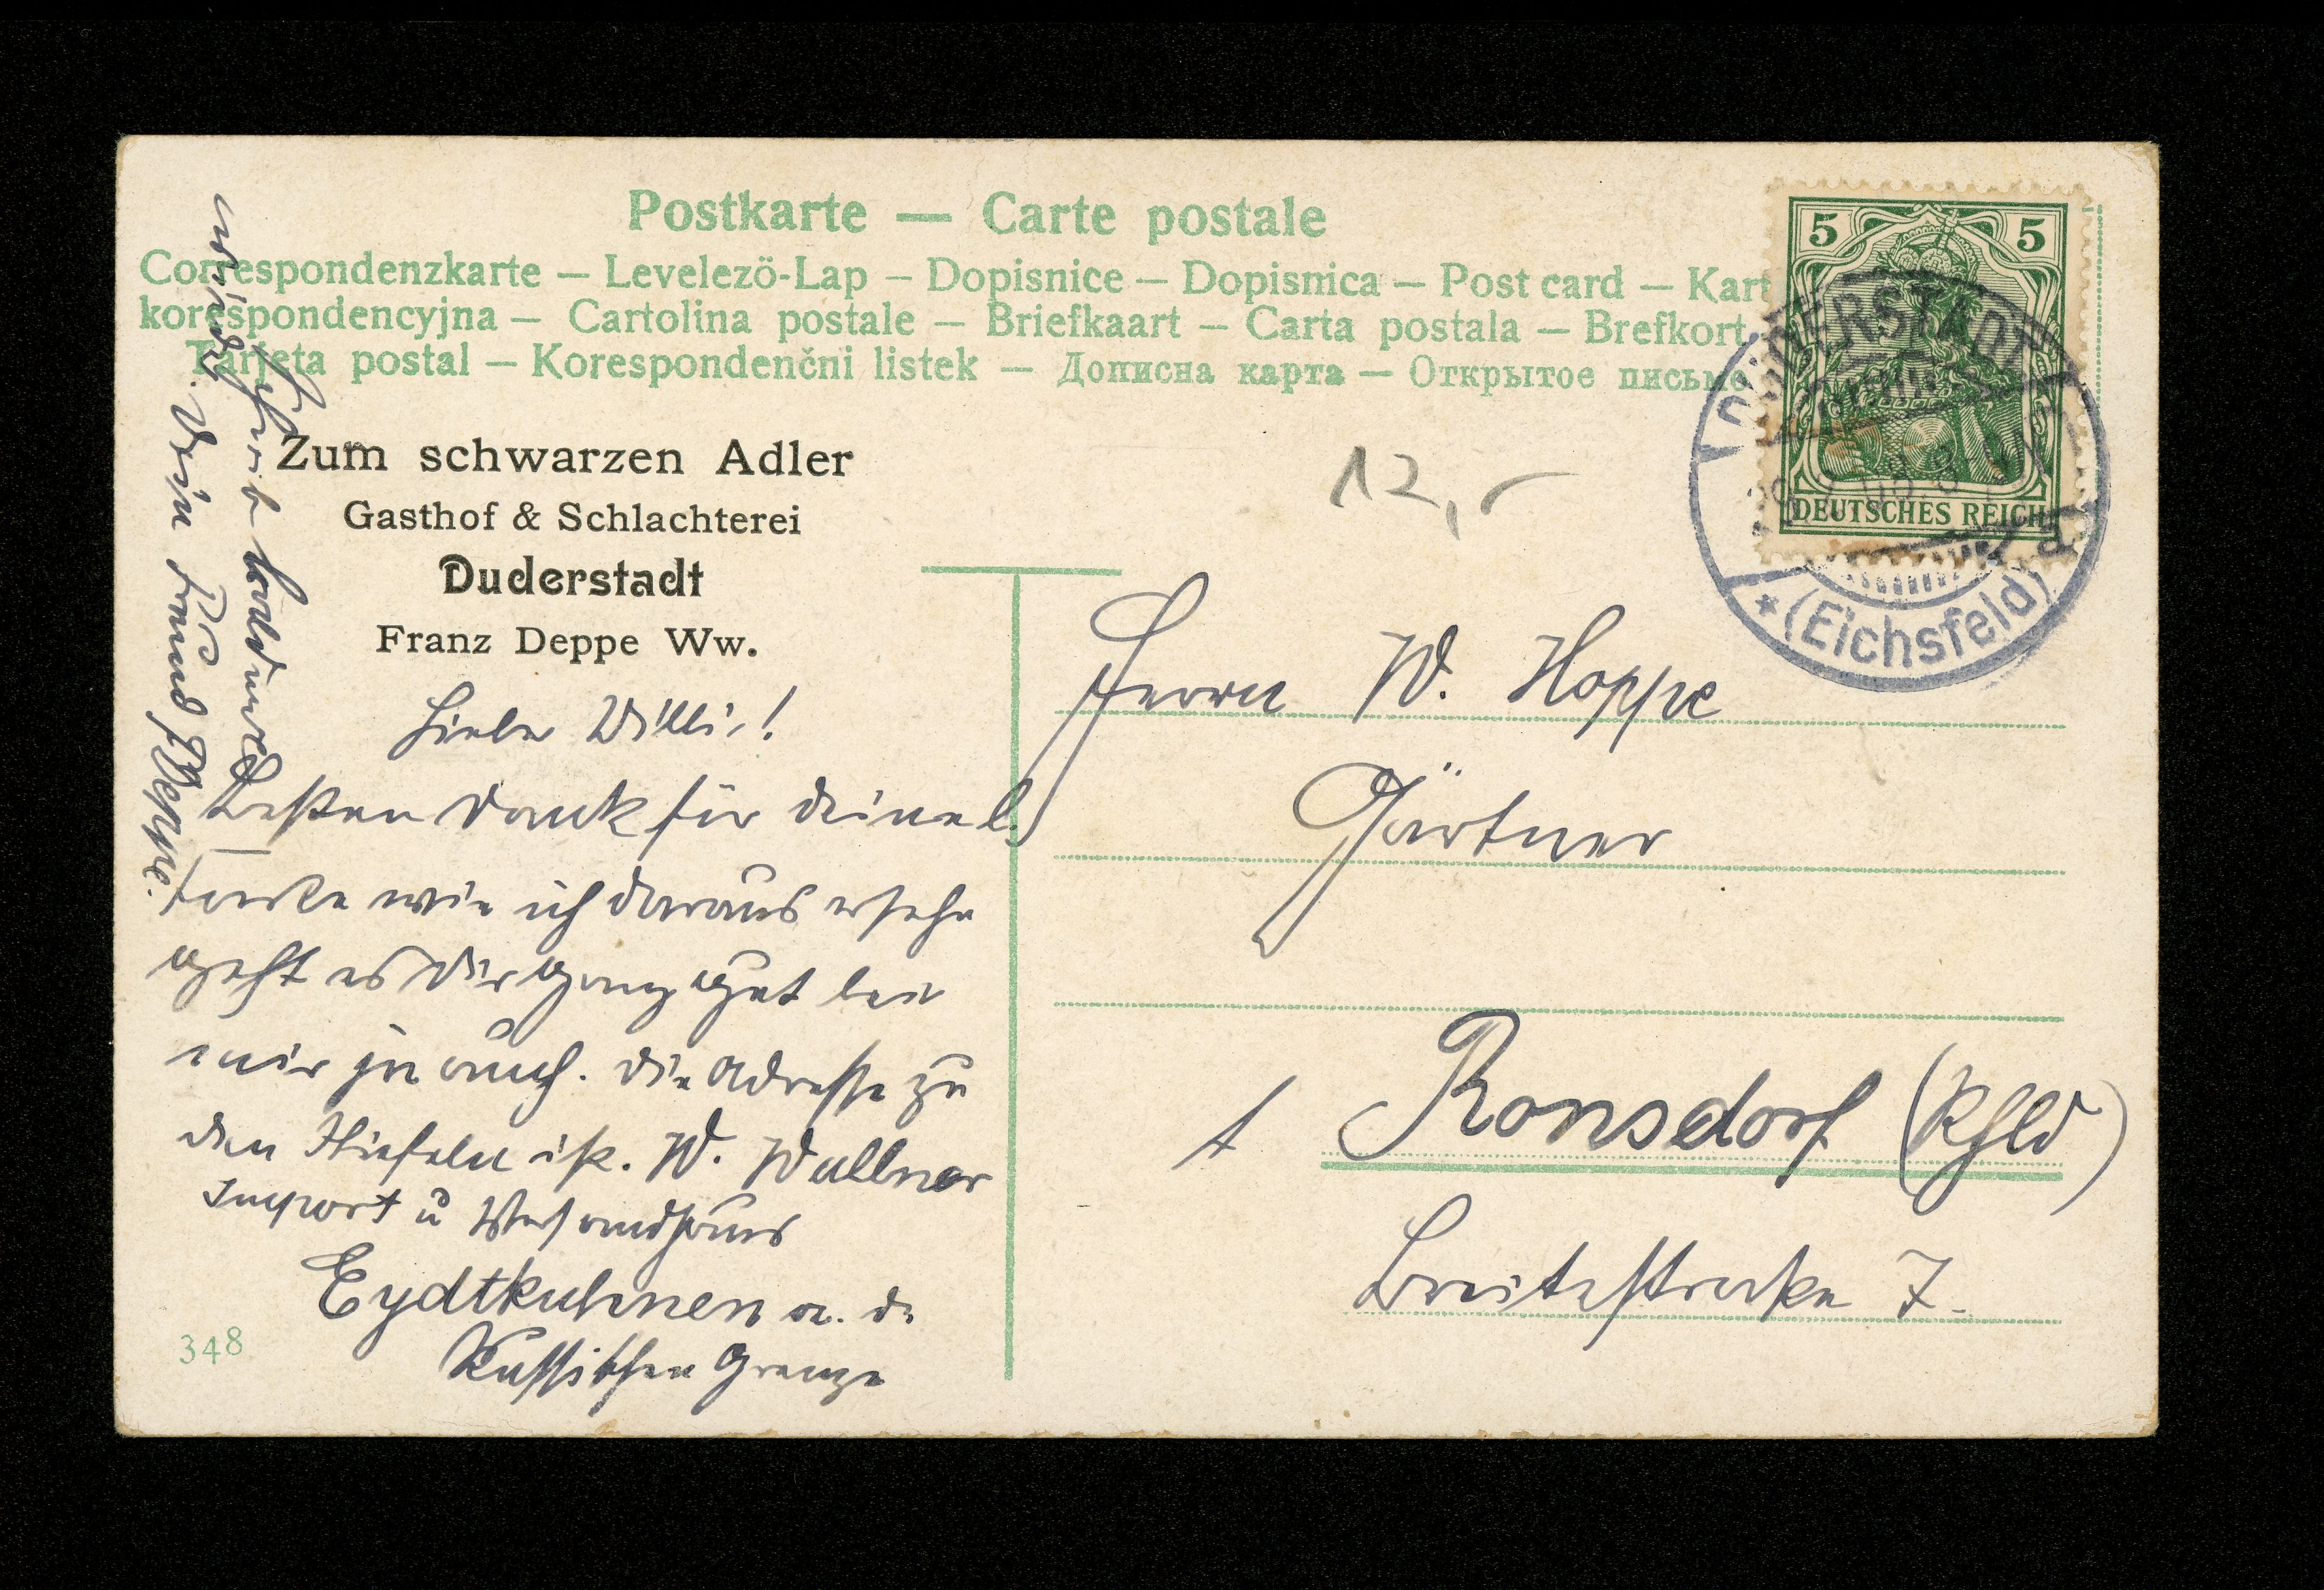 Postkarte — Carte postale
Correspondenzkarte — Levelezö-Lap — Dopisnice — Dopisnica — Post card — Kart
korespondencyjna — Cartolina postale — Briefkaart — Carta postala — Brefkort
Tarjeta postal — Korespondenčni listek — Дописна карта — Открытое письмо
5 5
DEUTSCHES REICH
DUDERSTADT
* (Eichsfeld)
12,-
Zum schwarzen Adler
Gasthof & Schlachterei
Duderstadt
Franz Deppe Ww.
Lieber Willi!
Besten Dank für deine l.
Karte wie ich daraus ersehe
geht es dir ganz gut bei
mir ja auch. Die Adresse zu
den Stiefeln ist. W. Wallner
Import u Versandhaus
Eydtkuhnen a. d.
Russischen Grenze
Schreib bald
wieder. Dein Freund Deppe.
Herrn W. Hoppe
Gärtner
Ronsdorf (Rhld)
Breitestraße 7.
348